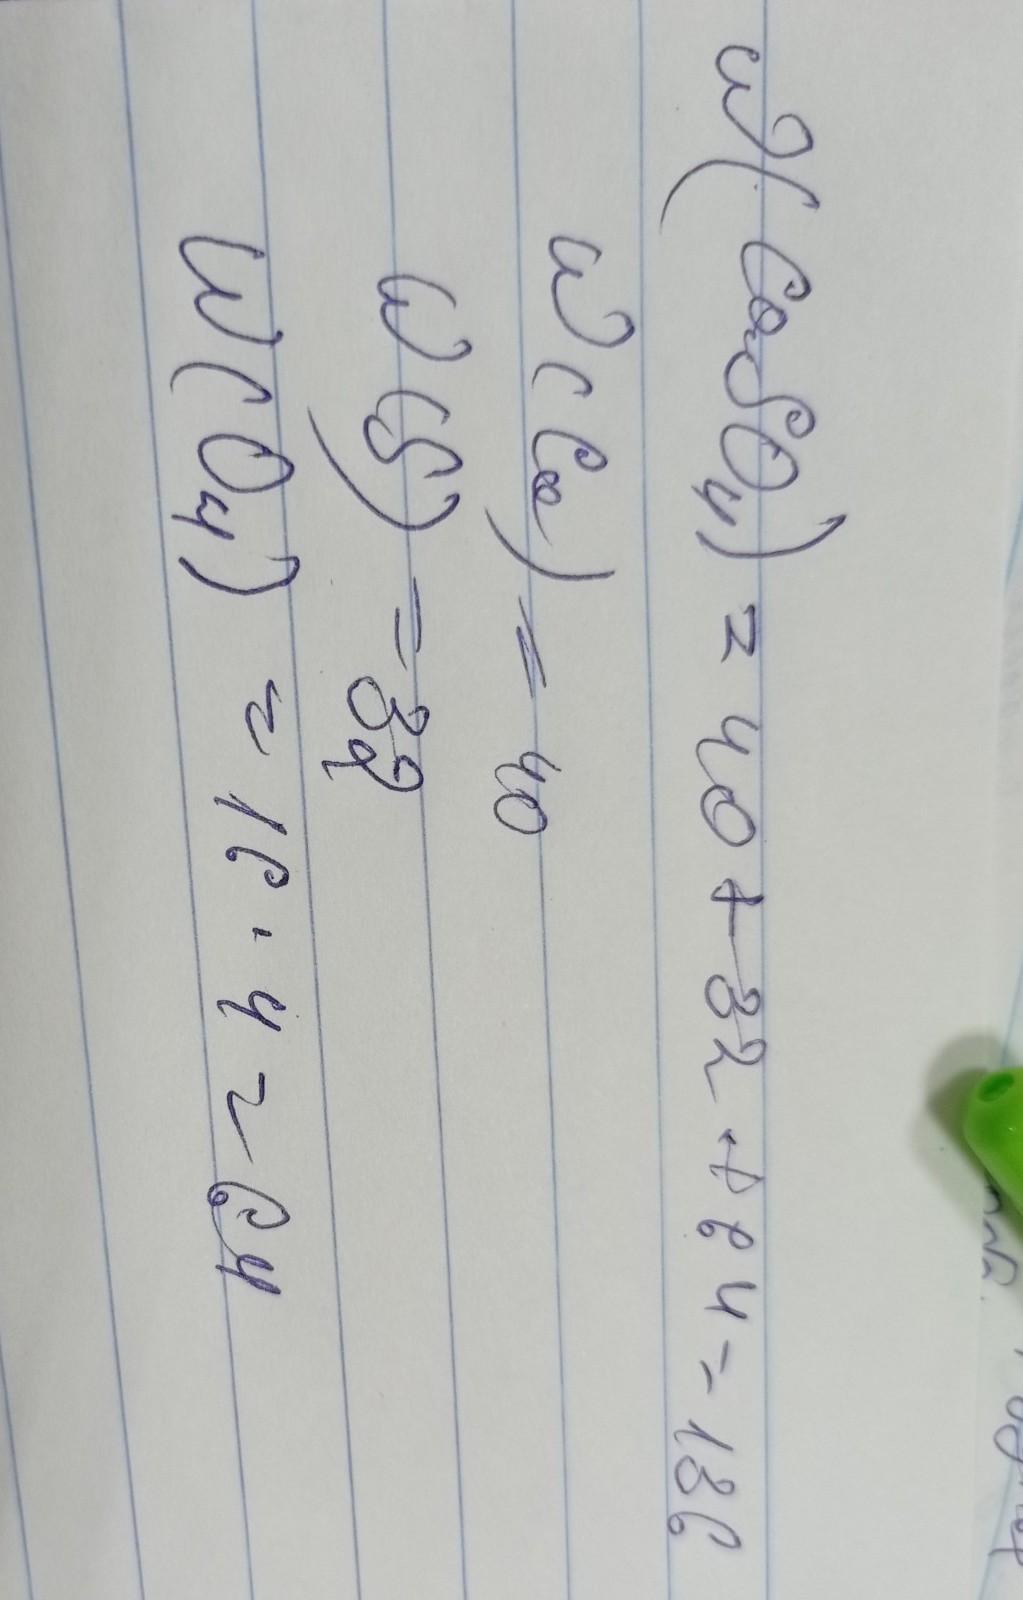 w(CaSO4) = 40+32+64=136
w(Ca) = 40
w(S) = 32
w(O4) = 16·4=64